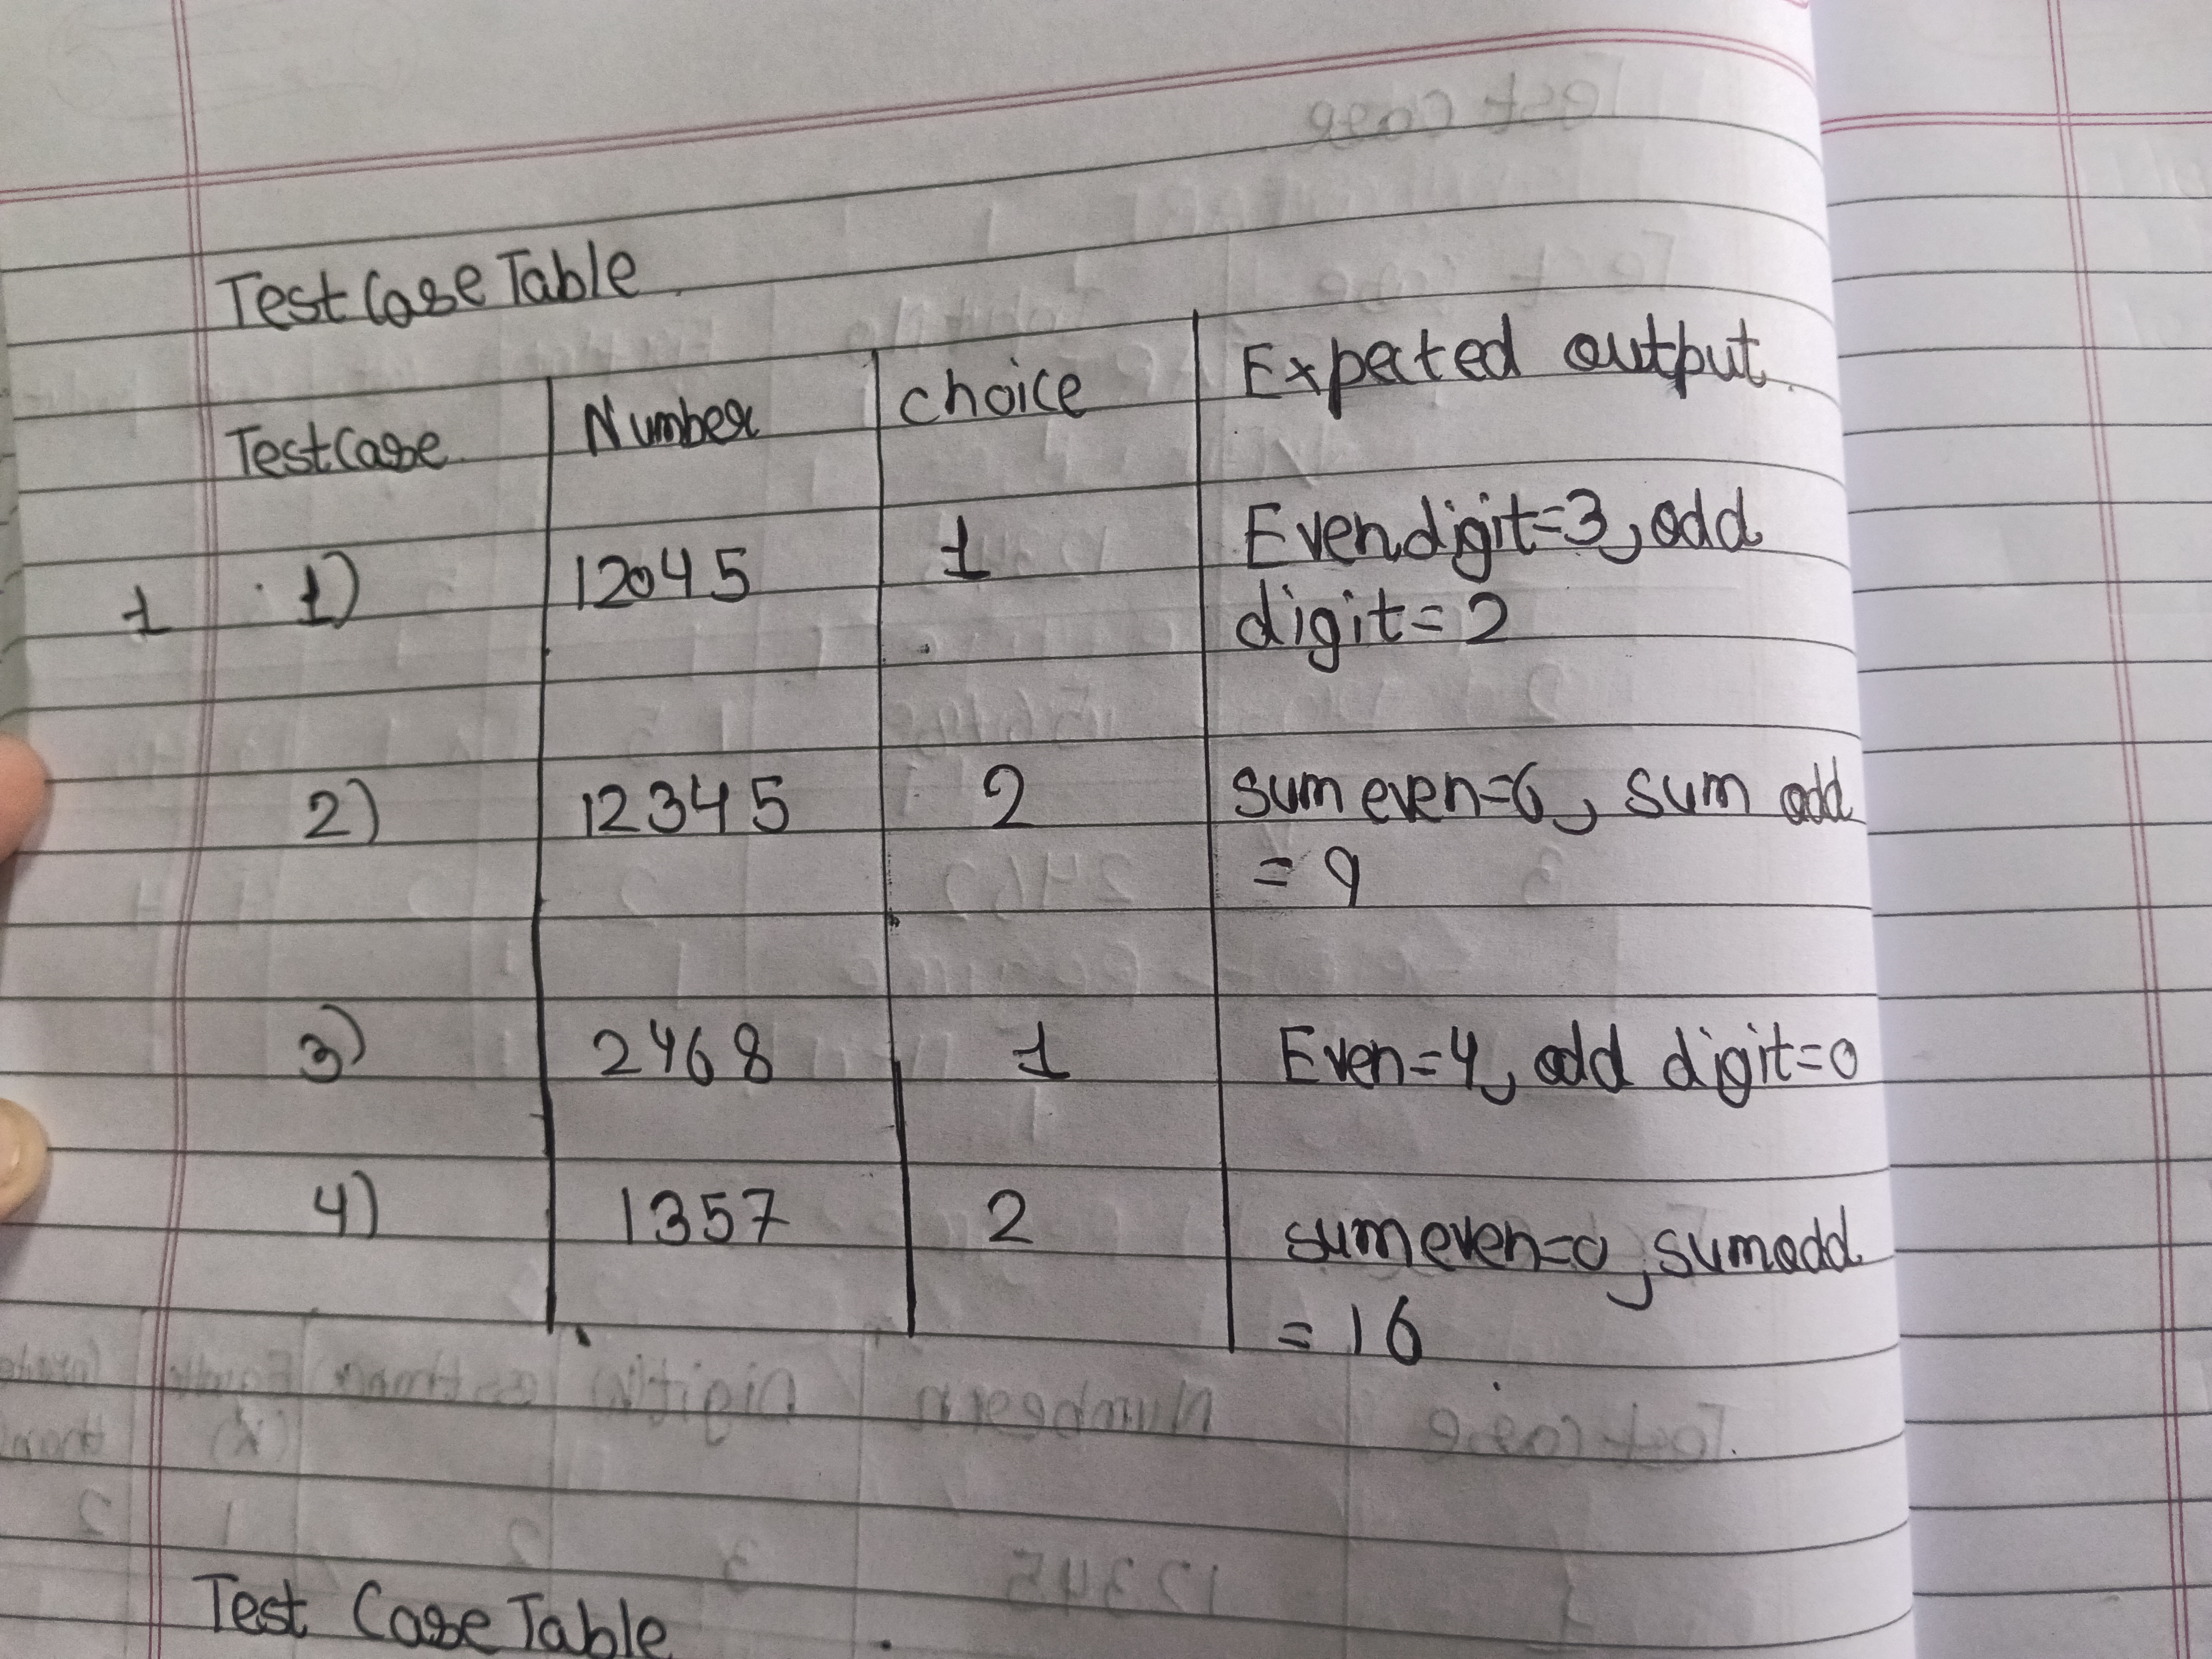 Test Case Table
Test Case Number choice Expected output
1 1) 12045 1 Even digit=3, odd
digit=2
2) 12345 2 sum even=6, sum odd
= 9
3) 2468 1 Even=4, odd digit=0
4) 1357 2 sum even=0, sum odd
= 16
Test Case Table